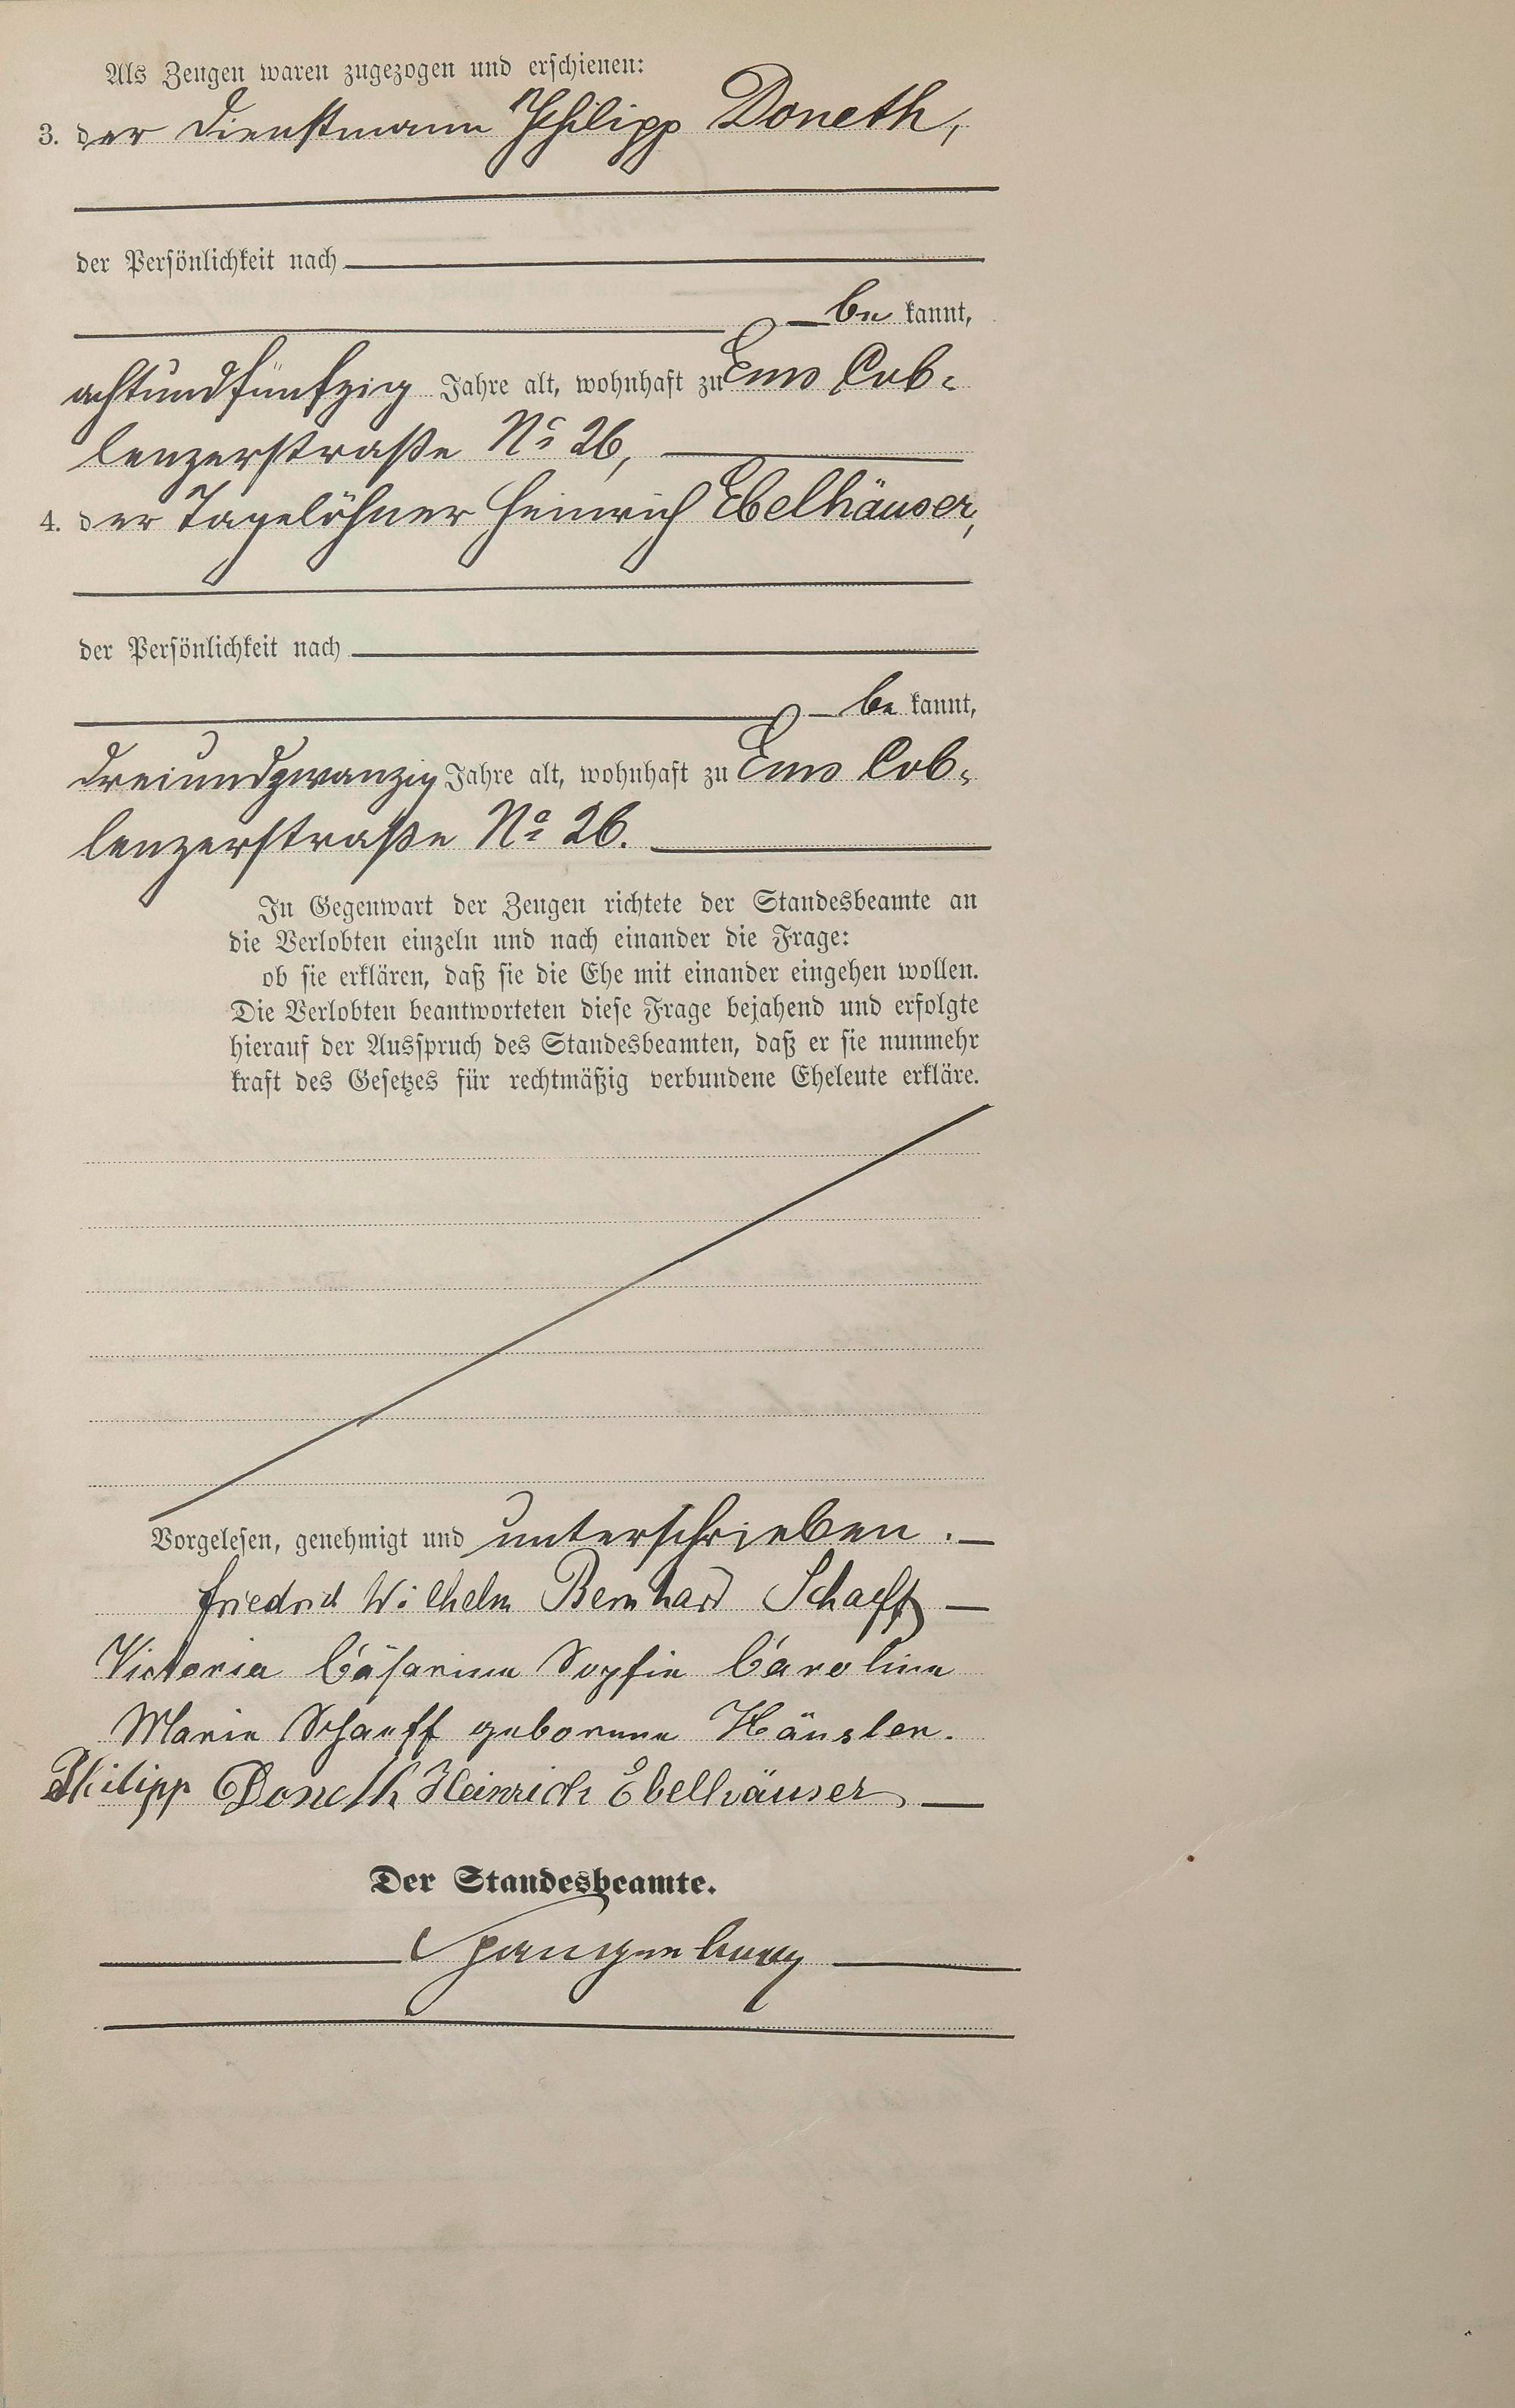 Als Zeugen waren zugezogen und erschienen:
3. der Dienstmann Philipp Doneth,
der Persönlichkeit nach
be kannt,
achtundfünfzig Jahre alt, wohnhaft zu Ems Cob-
lenzerstraße No 26,
4. der Tagelöhner Heinrich Ebelhäuser,
der Persönlichkeit nach
be kannt,
dreiundzwanzig Jahre alt, wohnhaft zu Ems Cob-
lenzerstraße No 26.
In Gegenwart der Zeugen richtete der Standesbeamte an
die Verlobten einzeln und nach einander die Frage:
ob sie erklären, daß sie die Ehe mit einander eingehen wollen.
Die Verlobten beantworteten diese Frage bejahend und erfolgte
hierauf der Ausspruch des Standesbeamten, daß er sie nunmehr
kraft des Gesetzes für rechtmäßig verbundene Eheleute erkläre.
Vorgelesen, genehmigt und unterschrieben.
Friedrich Wilhelm Bernhard Schaeff
Victoria Cäsarine Sophie Caroline
Marie Schaeff geborene Hänsler.
Philipp Doneth Heinrich Ebelhäuser
Der Standesbeamte.
Spangenberg